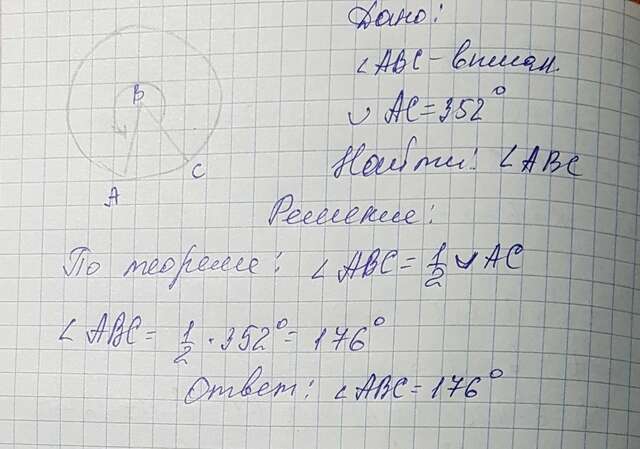 Дано:
∠ABC - вписан.
◡ AC = 352°
Найти: ∠ABC
B
A
C
Решение:
По теореме: ∠ABC = 1/2 ◡ AC
∠ABC = 1/2 · 352° = 176°
Ответ: ∠ABC = 176°